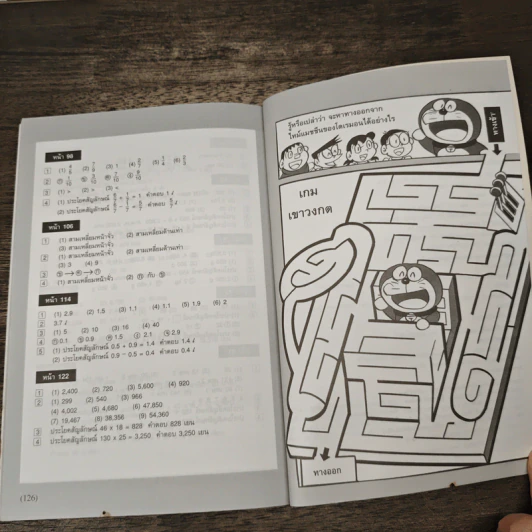 หน้า 98
1 (1) (2) (3) 1 (4) (5) (6)
3 (1) > (2) > (3) <
4 (1) ประโยคสัญลักษณ์ คำตอบ 1 ℓ
(2) ประโยคสัญลักษณ์ คำตอบ ℓ
หน้า 106
1 (1) สามเหลี่ยมหน้าจั่ว (2) สามเหลี่ยมด้านเท่า
(3) สามเหลี่ยมหน้าจั่ว
2 (1) สามเหลี่ยมหน้าจั่ว (2) สามเหลี่ยมด้านเท่า
(3) 3 (4) 9
4 (1) สามเหลี่ยมหน้าจั่ว (2) กับ
หน้า 114
1 (1) 2.9 (2) 1.5 (3) 1.1 (4) 1.1 (5) 1.9 (6) 2
2 3.7 ℓ
3 (1) 5 (2) 10 (3) 16 (4) 40
4 0.1 0.9 1.5 2.1 2.9
5 (1) ประโยคสัญลักษณ์ 0.5 + 0.9 = 1.4 คำตอบ 1.4 ℓ
(2) ประโยคสัญลักษณ์ 0.9 − 0.5 = 0.4 คำตอบ 0.4 ℓ
หน้า 122
1 (1) 2,400 (2) 720 (3) 5,600 (4) 920
2 (1) 299 (2) 540 (3) 966
(4) 4,002 (5) 4,680 (6) 47,850
(7) 19,467 (8) 38,356 (9) 54,360
3 ประโยคสัญลักษณ์ 46 x 18 = 828 คำตอบ 828 เยน
4 ประโยคสัญลักษณ์ 130 x 25 = 3,250 คำตอบ 3,250 เยน
(126)
รู้หรือเปล่าว่า จะหาทางออกจาก
ไทม์แมชชีนของโดเรมอนได้อย่างไร
ทางเข้า
เกม
เขาวงกต
ทางออก